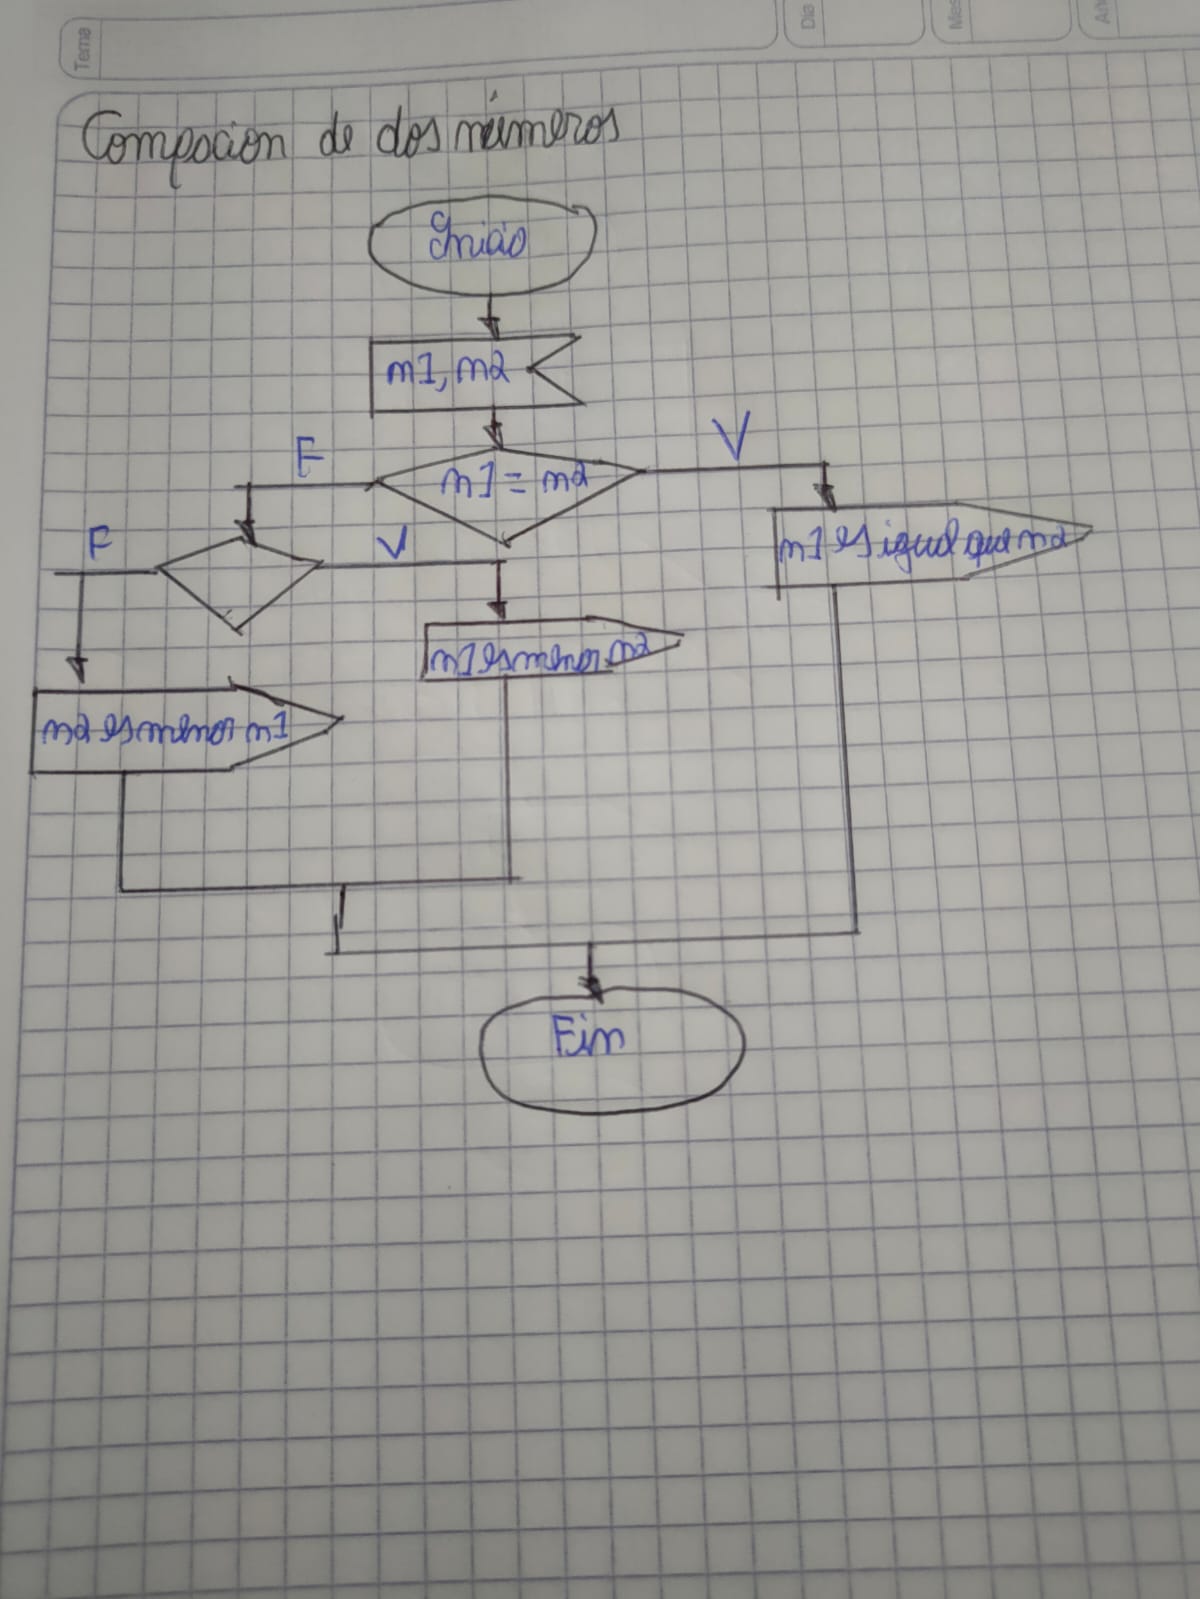 Tema
Dia
Mes
Año
Compocion de dos números
Inicio
n1, n2
F
V
n1 = n2
F
V
n1 es igual que n2
n1 es menor n2
n2 es menor n1
Fin